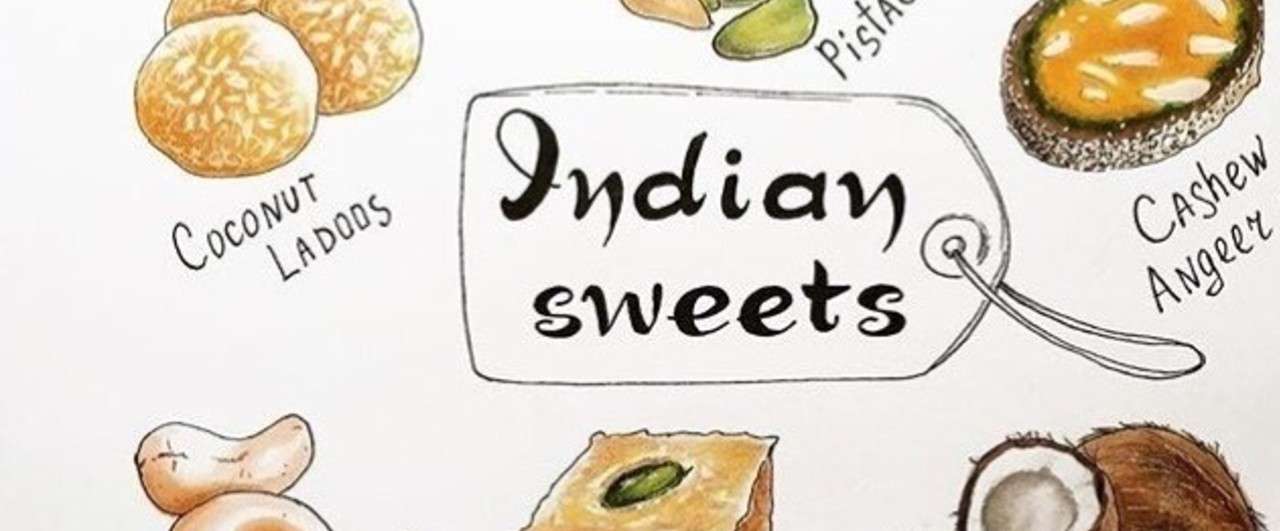 Coconut
Ladoos
Indian
sweets
Cashew
Angeer